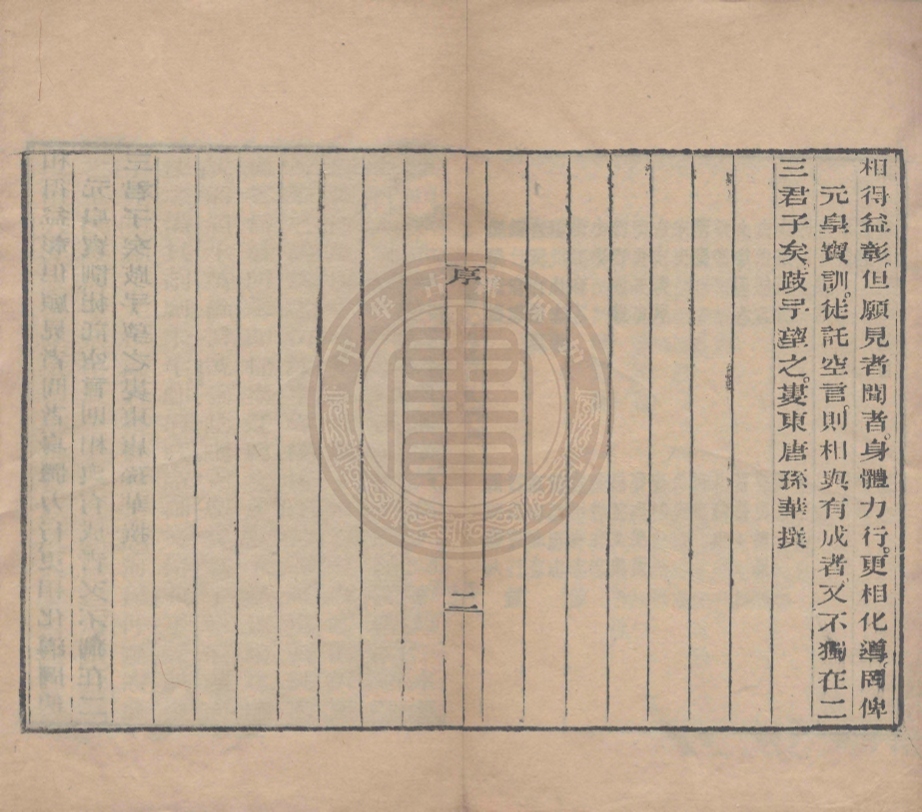 相得益彰但願見者聞者身體力行更相化導罔俾
元皇寶訓徒託空言則相與有成者又不獨在二
三君子矣跂予望之婁東唐孫華撰
序
二